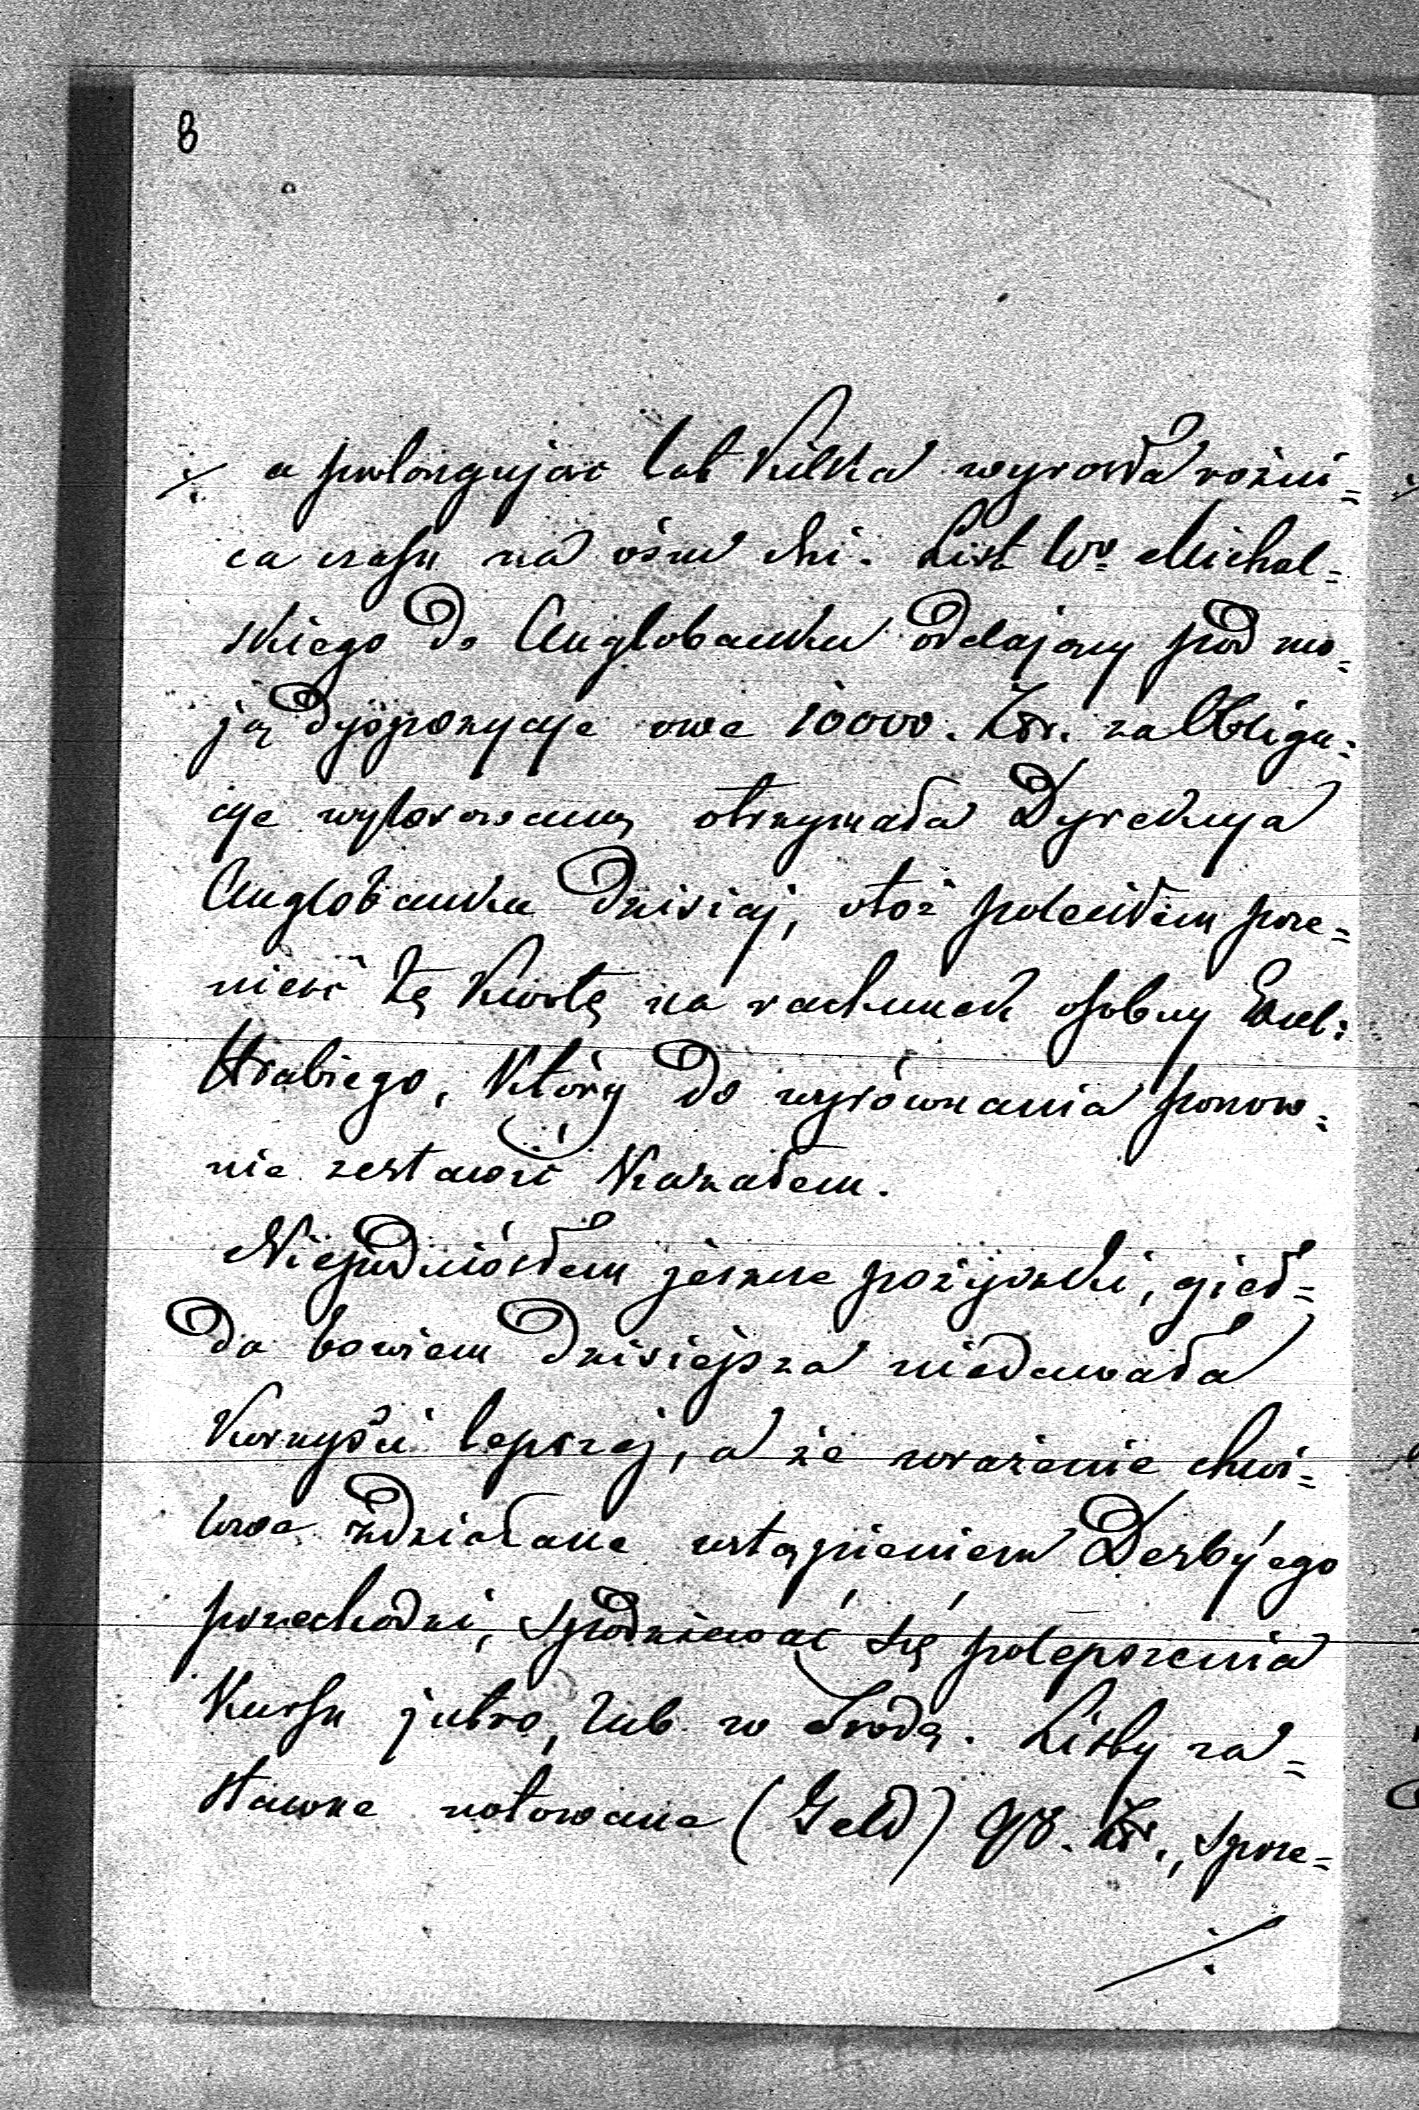 8
⁒ a prolongując lat kilka wyrosła rożni=
ca czasu na óśm dni. List Wo. Michal=
skiego do Anglobanku oddający pod mo=
ją dyspozycyje owe 10000. Złr. za Obliga=
cyje wylosowaną otrzymała Dyrekcya
Anglobanku dzisiaj, otóż poleciłem prze=
nieść tę kwotę na rachunek osobny
Hrabiego, który do wyrównania ponow=
nie zestawić kazałem.
Niepodniósłem jeszcze pożyczki, gieł=
da bowiem dzisiejsza niedawała
korzyści lepszej, a że wrażenie chwi=
lowe zdziałane wstąpieniem Derby'ego
przechodzi, spodziewać się polepszenia
kursu jutro, lub w Środę. Listy za=
stawne notowane (Geld) 98. Złr., sprze=
⁒